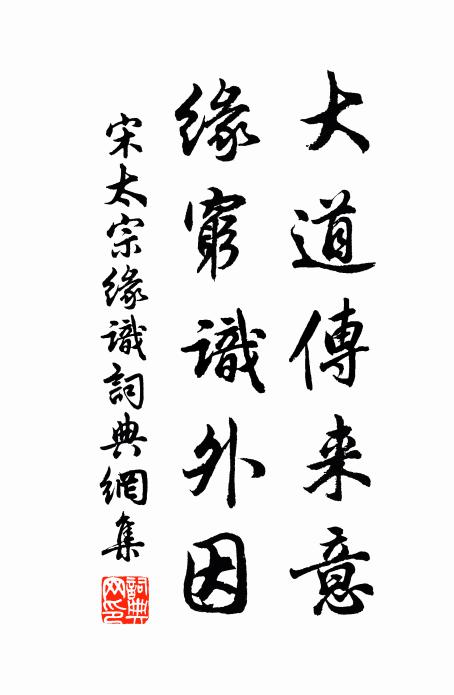 大道傳来意
緣窮識外因
宋太宗緣識詞典網集
詞典網印